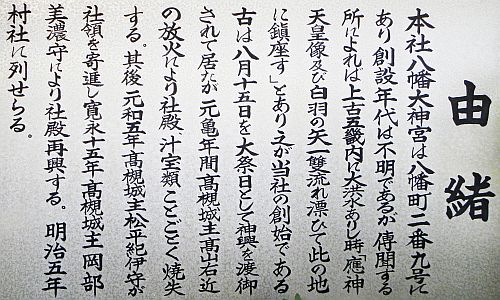 由緒
本社八幡大神宮は八幡町二番九号に
あり創設年代は不明であるが傳聞する
所によれば「上古五畿内に大洪水あり時、應神
天皇像及び白羽の矢一雙流れ漂ひて此の地
に鎮座す」とあり之が当社の創始である
古は八月十五日を大祭日として神輿を渡御
されて居たが元亀年間高槻城主高山右近
の放火により社殿、什宝類ことごとく焼失
する。其後元和五年高槻城主松平紀伊守が
社領を寄進し寛永十五年高槻城主岡部
美濃守により社殿再興する。明治五年
村社に列せらる。